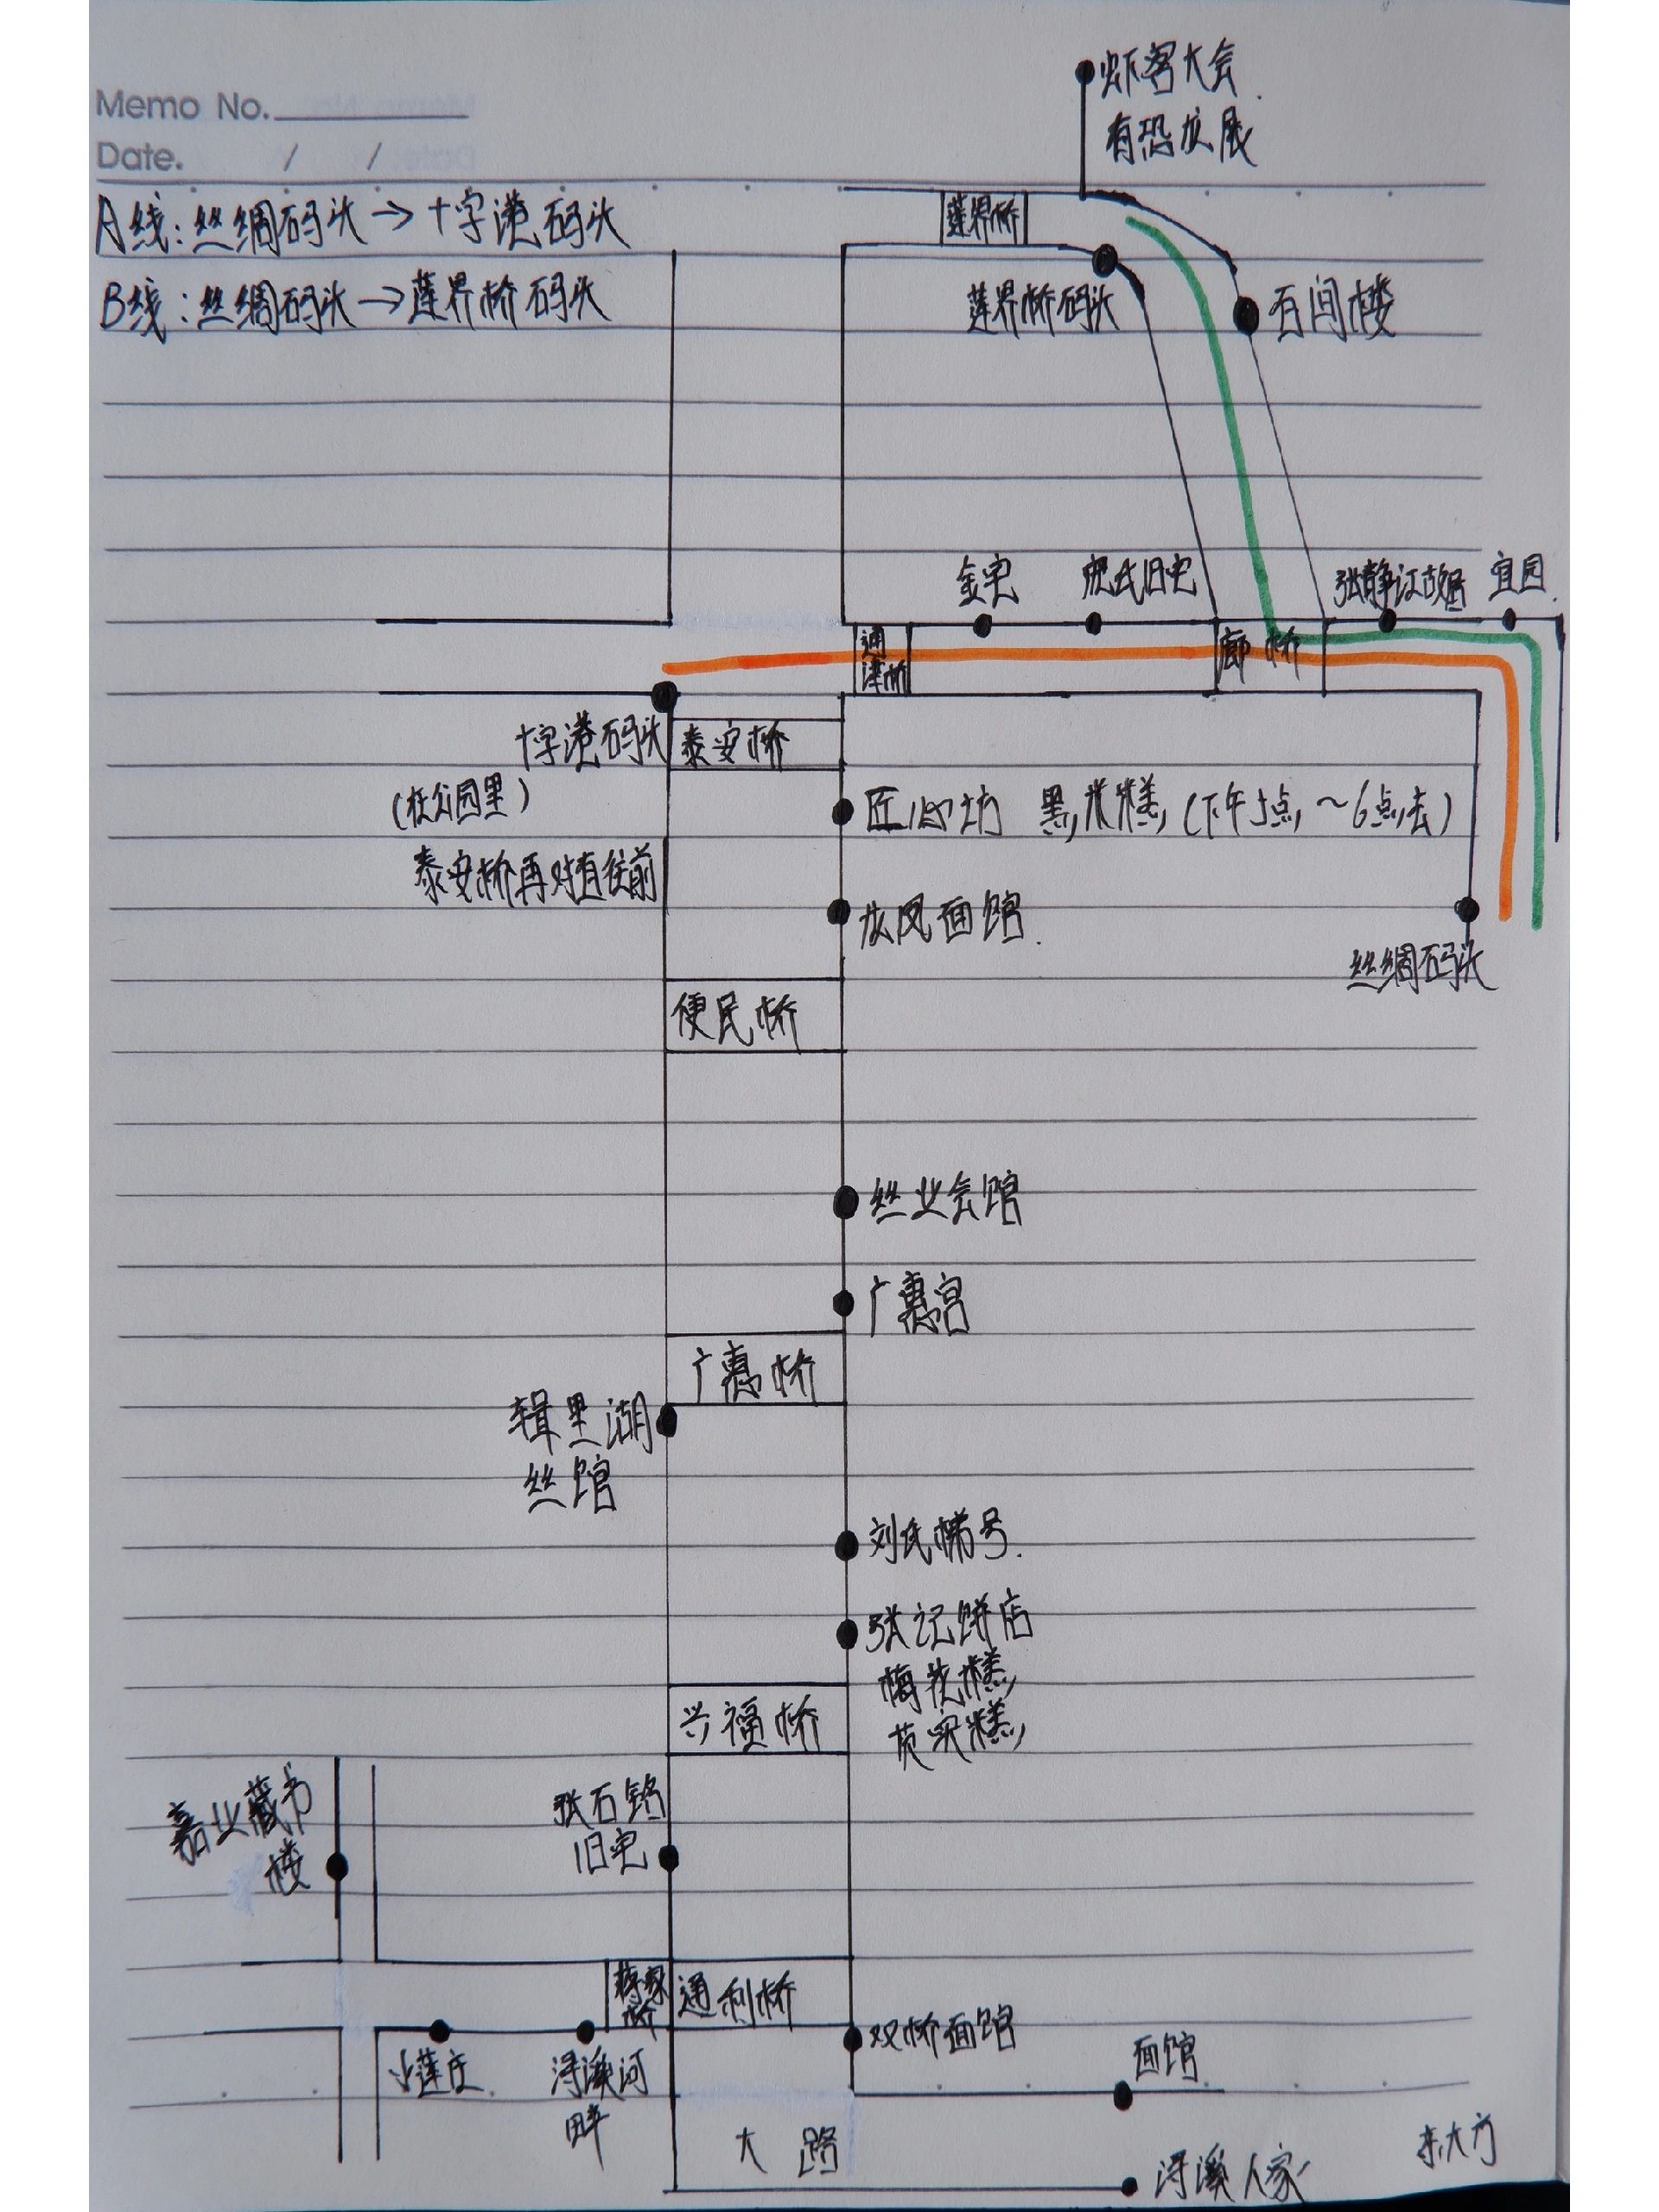 虾客大会
有恐龙展
Memo No.
Date. / /
A线:丝绸码头→十字港码头
B线:丝绸码头→莲界桥码头
莲界桥
莲界桥码头
百间楼
金宅
庞氏旧宅
张静江故居
宜园
通津桥
廊桥
十字港码头
(在公园里)
泰安桥
泰安桥再对直往前
匠心坊 黑米糕(下午5点~6点去)
龙凤面馆
丝绸码头
便民桥
丝业会馆
广惠宫
广惠桥
辑里湖
丝馆
刘氏悌号
张记饼店
梅花糕
芡实糕
兴福桥
嘉业藏书
楼
张石铭
旧宅
通利桥
小莲庄
浔溪河
畔
双桥面馆
面馆
大路
浔溪人家
东大方